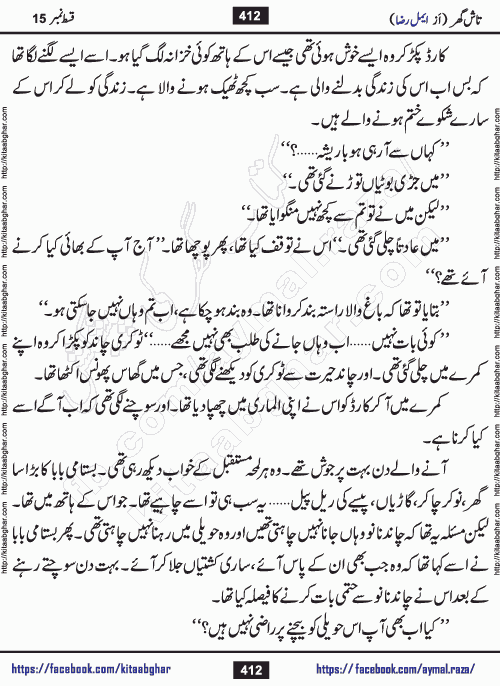 تاش گھر (از ایمل رضا)
412
قسط نمبر 15
کارڈ پکڑ کر وہ ایسے خوش ہوئی تھی جیسے اس کے ہاتھ کوئی خزانہ لگ گیا ہو۔ اسے ایسے لگنے لگا تھا
کہ بس اب اس کی زندگی بدلنے والی ہے۔ سب کچھ ٹھیک ہونے والا ہے۔ زندگی کو لے کر اس کے
سارے شکوے ختم ہونے والے ہیں۔
’’کہاں سے آ رہی ہو باریشہ......؟‘‘
’’میں جڑی بوٹیاں توڑنے گئی تھی۔‘‘
’’لیکن میں نے تو تم سے کچھ نہیں منگوایا تھا۔‘‘
’’میں عادتاً چلی گئی تھی۔‘‘ اس نے توقف کیا تھا، پھر پوچھا تھا۔ ’’آج آپ کے بھائی کیا کرنے
آئے تھے؟‘‘
’’بتایا تو تھا کہ باغ والا راستہ بند کروانا تھا۔ وہ بند ہو چکا ہے، اب تم وہاں نہیں جا سکتی ہو۔‘‘
’’کوئی بات نہیں...... اب وہاں جانے کی طلب بھی نہیں مجھے......‘‘ ٹوکری چاند کو پکڑا کر وہ اپنے
کمرے میں چلی گئی تھی۔ اور چاند حیرت سے ٹوکری کو دیکھنے لگی تھی، جس میں گھاس پھونس اکٹھا تھا۔
کمرے میں آ کر کارڈ کو اس نے اپنی الماری میں چھپا دیا تھا۔ اور سوچنے لگی تھی کہ اب آگے اسے
کیا کرنا ہے۔
آنے والے دن بہت پر جوش تھے۔ وہ ہر لمحہ مستقبل کے خواب دیکھ رہی تھی۔ بستامی بابا کا بڑا سا
گھر، نوکر چاکر، گاڑیاں، پیسے کی ریل پیل...... یہ سب ہی تو اسے چاہیے تھا۔ جو اس کے ہاتھ میں تھا۔
لیکن مسئلہ یہ تھا کہ چاند نانو وہاں جانا نہیں چاہتی تھیں اور وہ حویلی میں رہنا نہیں چاہتی تھی۔ پھر بستامی بابا
نے اسے کہا تھا کہ وہ جب بھی ان کے پاس آئے، ساری کشتیاں جلا کر آئے۔ بہت دن سوچتے رہنے
کے بعد اس نے چاند نانو سے حتمی بات کرنے کا فیصلہ کیا تھا۔
’’کیا اب بھی آپ اس حویلی کو بیچنے پر راضی نہیں ہیں؟‘‘
https://facebook.com/kitaabghar
412
https://facebook.com/aymal.raza/
http://kitaabghar.com http://kitaabghar.com http://kitaabghar.com http://kitaabghar.com http://kitaabghar.com
http://kitaabghar.com http://kitaabghar.com http://kitaabghar.com http://kitaabghar.com http://kitaabghar.com